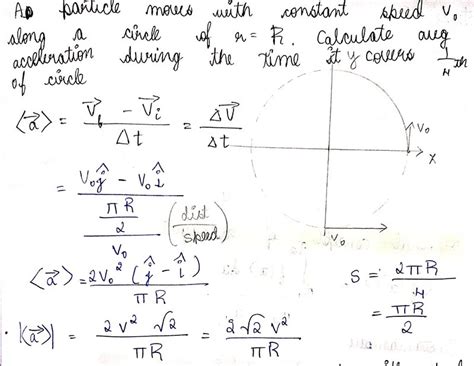 A particle moves with constant speed v₀
along a circle of r = R. Calculate avg
acceleration during the time it y covers 1/4 th
of circle
⟨a⃗⟩ = (V⃗f − V⃗i)/Δt = ΔV⃗/Δt
V₀
x
V₀
= (V₀ĵ − V₀î)/((πR/2)/V₀) (dist/speed)
⟨a⃗⟩ = 2V₀² (ĵ − î)/πR
S = 2πR/4
= πR/2
|⟨a⃗⟩| = 2V² √2/πR = 2√2 V²/πR